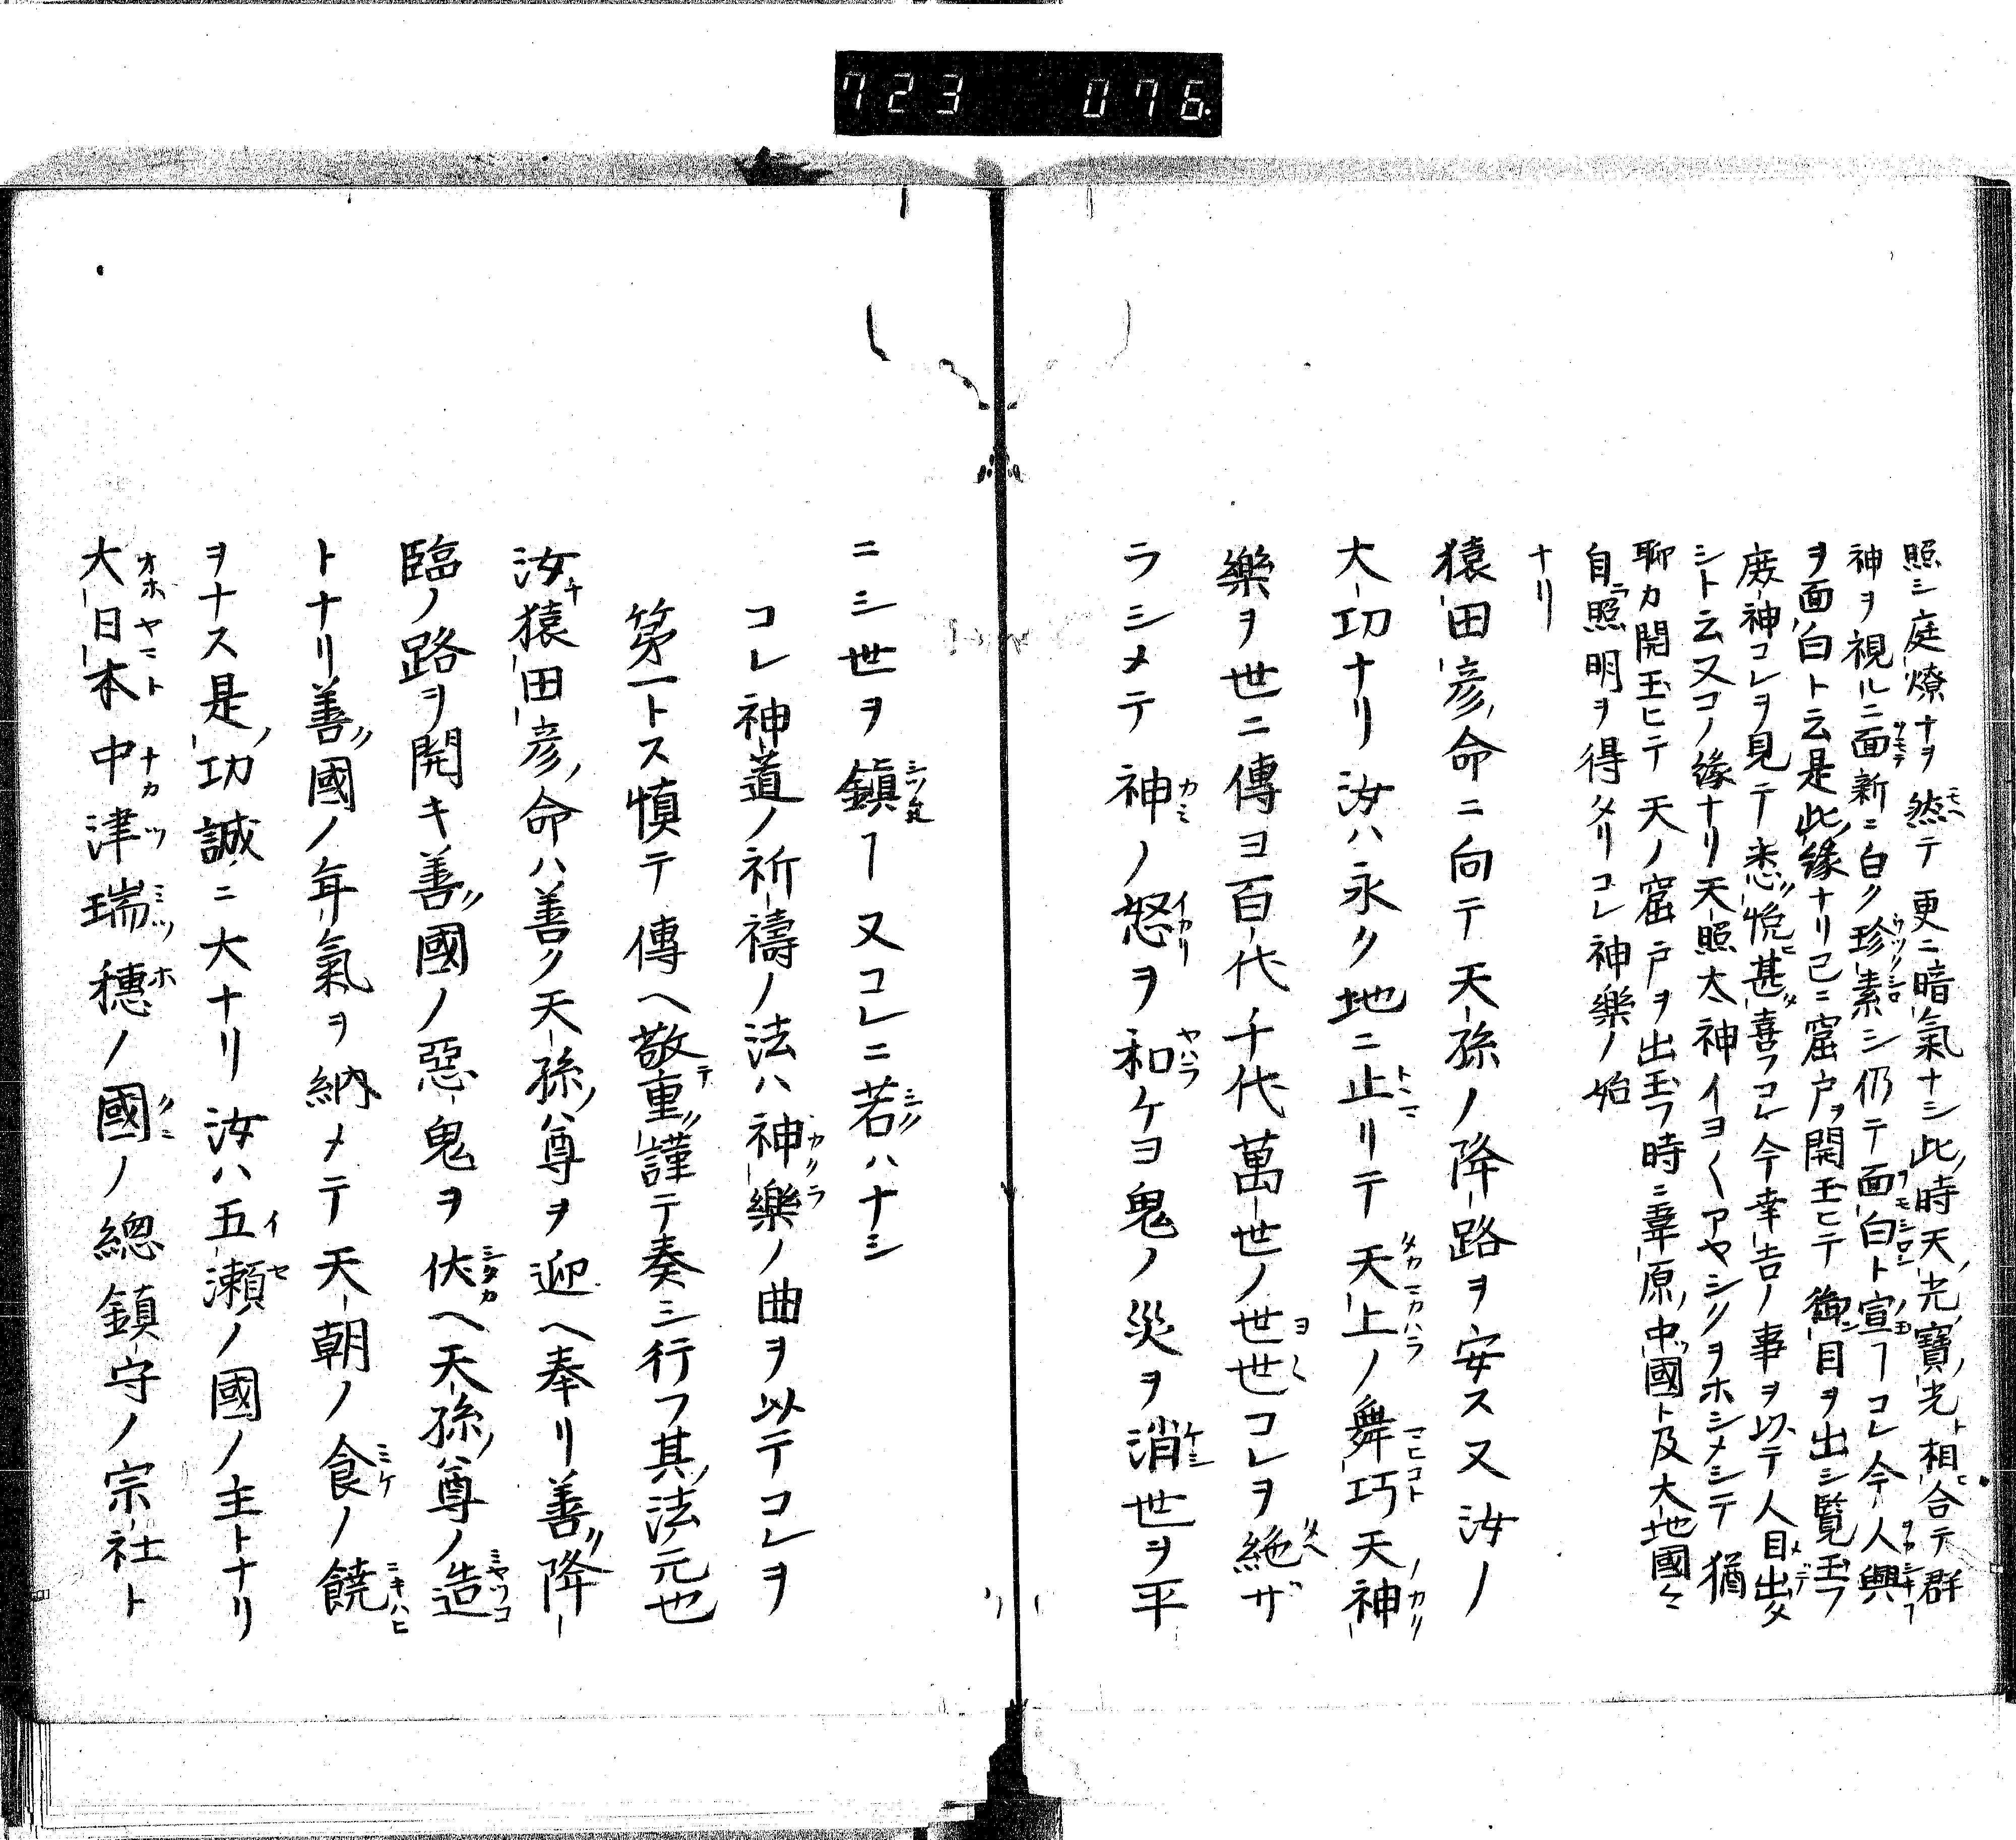 723 076.
照シ庭燎ナヲ然テ更ニ暗氣ナシ此時天光寶光ト相合テ群
神ヲ視ルニ面新ニ白ク珍素シ仍テ面白ト宣フコレ今人興
ヲ面白ト云是此縁ナリ已ニ窟戸ヲ開玉ヒテ御目ヲ出シ覧玉フ
庻神コレヲ見テ悉悦甚喜フコレ今幸吉ノ事ヲ以テ人目出タ
シト云又コノ縁ナリ天照太神イヨ〱アヤシクヲホシメシテ猶
聊カ開玉ヒテ天ノ窟戸ヲ出玉フ時ニ葦原中國ト及大地國々
自照明ヲ得タリコレ神樂ノ始
ナリ
猿田彦命ニ向テ天孫ノ降路ヲ安ス又汝ノ
大功ナリ汝ハ永ク地ニ止リテ天上ノ舞巧天神
樂ヲ世ニ傳ヨ百代千代萬世ノ世世コレヲ絶ザ
ラシメテ神ノ怒ヲ和ケヨ鬼ノ災ヲ消世ヲ平
ニシ世ヲ鎮フ又コレニ若ハナシ
コレ神道ノ祈禱ノ法ハ神樂ノ曲ヲ以テコレヲ
第一トス慎テ傳ヘ敬重謹テ奏シ行フ其法元也
汝猿田彦命ハ善ク天孫尊ヲ迎ヘ奉リ善降
臨ノ路ヲ開キ善國ノ惡鬼ヲ伏ヘ天孫尊ノ造
トナリ善國ノ年氣ヲ納メテ天朝ノ食ノ饒
ヲナス是功誠ニ大ナリ汝ハ五瀬ノ國ノ主トナリ
大日本中津瑞穗ノ國ノ總鎮守ノ宗社ト